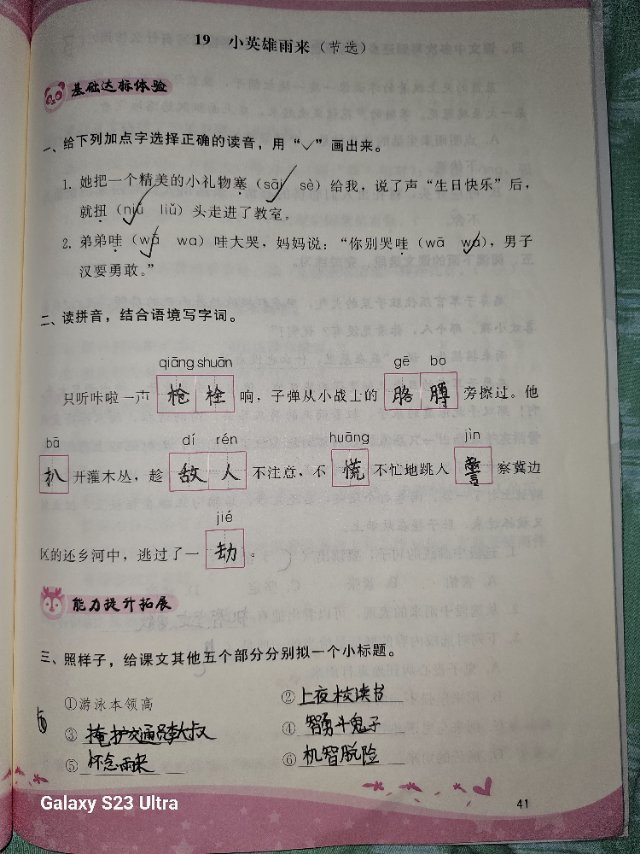 19 小英雄雨来（节选）
基础达标体验
一、给下列加点字选择正确的读音，用“✓”画出来。
1. 她把一个精美的小礼物塞（sāi sè）给我，说了声“生日快乐”后，
就扭（niǔ liǔ）头走进了教室。
2. 弟弟哇（wā wa）哇大哭，妈妈说：“你别哭哇（wā wa），男子
汉要勇敢。”
二、读拼音，结合语境写字词。
qiāng shuān gē bo
只听咔啦一声 枪栓 响，子弹从小战士的 胳膊 旁擦过。他
bā dí rén huāng jìn
扒 开灌木丛，趁 敌人 不注意，不 慌 不忙地跳入 警 察冀边
jié
区的还乡河中，逃过了一 劫 。
能力提升拓展
三、照样子，给课文其他五个部分分别拟一个小标题。
①游泳本领高 ②上夜校读书
③掩护交通员李大叔 ④智勇斗鬼子
⑤怀念雨来 ⑥机智脱险
Galaxy S23 Ultra
41